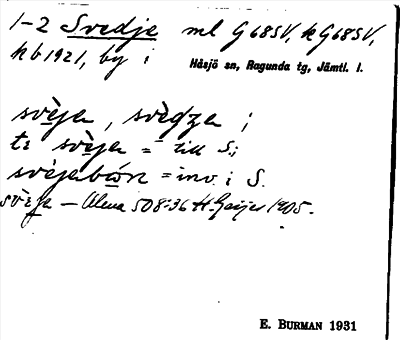 1-2 Svedje ml G68SV, k G68SV,
kb 1921, by i Håsjö sn, Ragunda tg, Jämtl. l.
svèja, svèdza ;
te svèja = till S.;
svèjabon = inv. i S.
svèja – Ulma 508:36 H. Geijer 1905.
E. BURMAN 1931